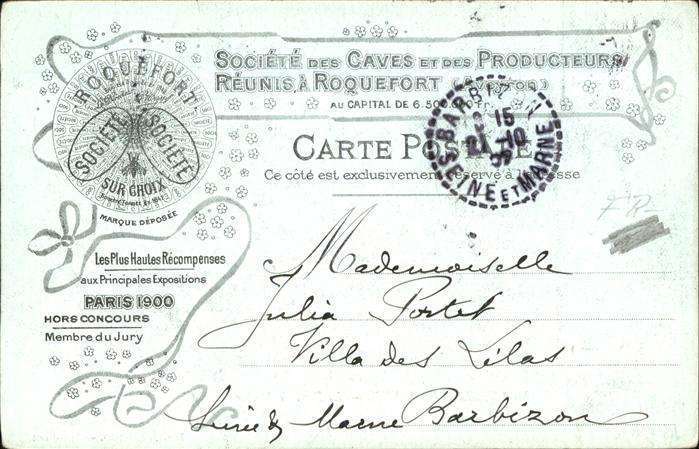 SOCIÉTÉ DES CAVES ET DES PRODUCTEURS
RÉUNIS, À ROQUEFORT
AU CAPITAL DE
CARTE POSTALE
Ce côté est exclusivement réservé à l'adresse
ROQUEFORT
SOCIÉTÉ SOCIÉTÉ
SUR CHOIX
MARQUE DÉPOSÉE
Les Plus Hautes Récompenses
aux Principales Expositions
PARIS 1900
HORS CONCOURS
Membre du Jury
BARBIZ
15
10
SEINE ET MARNE
FR
Mademoiselle
Julia Portet
Villa des Lilas
Seine & Marne Barbizon